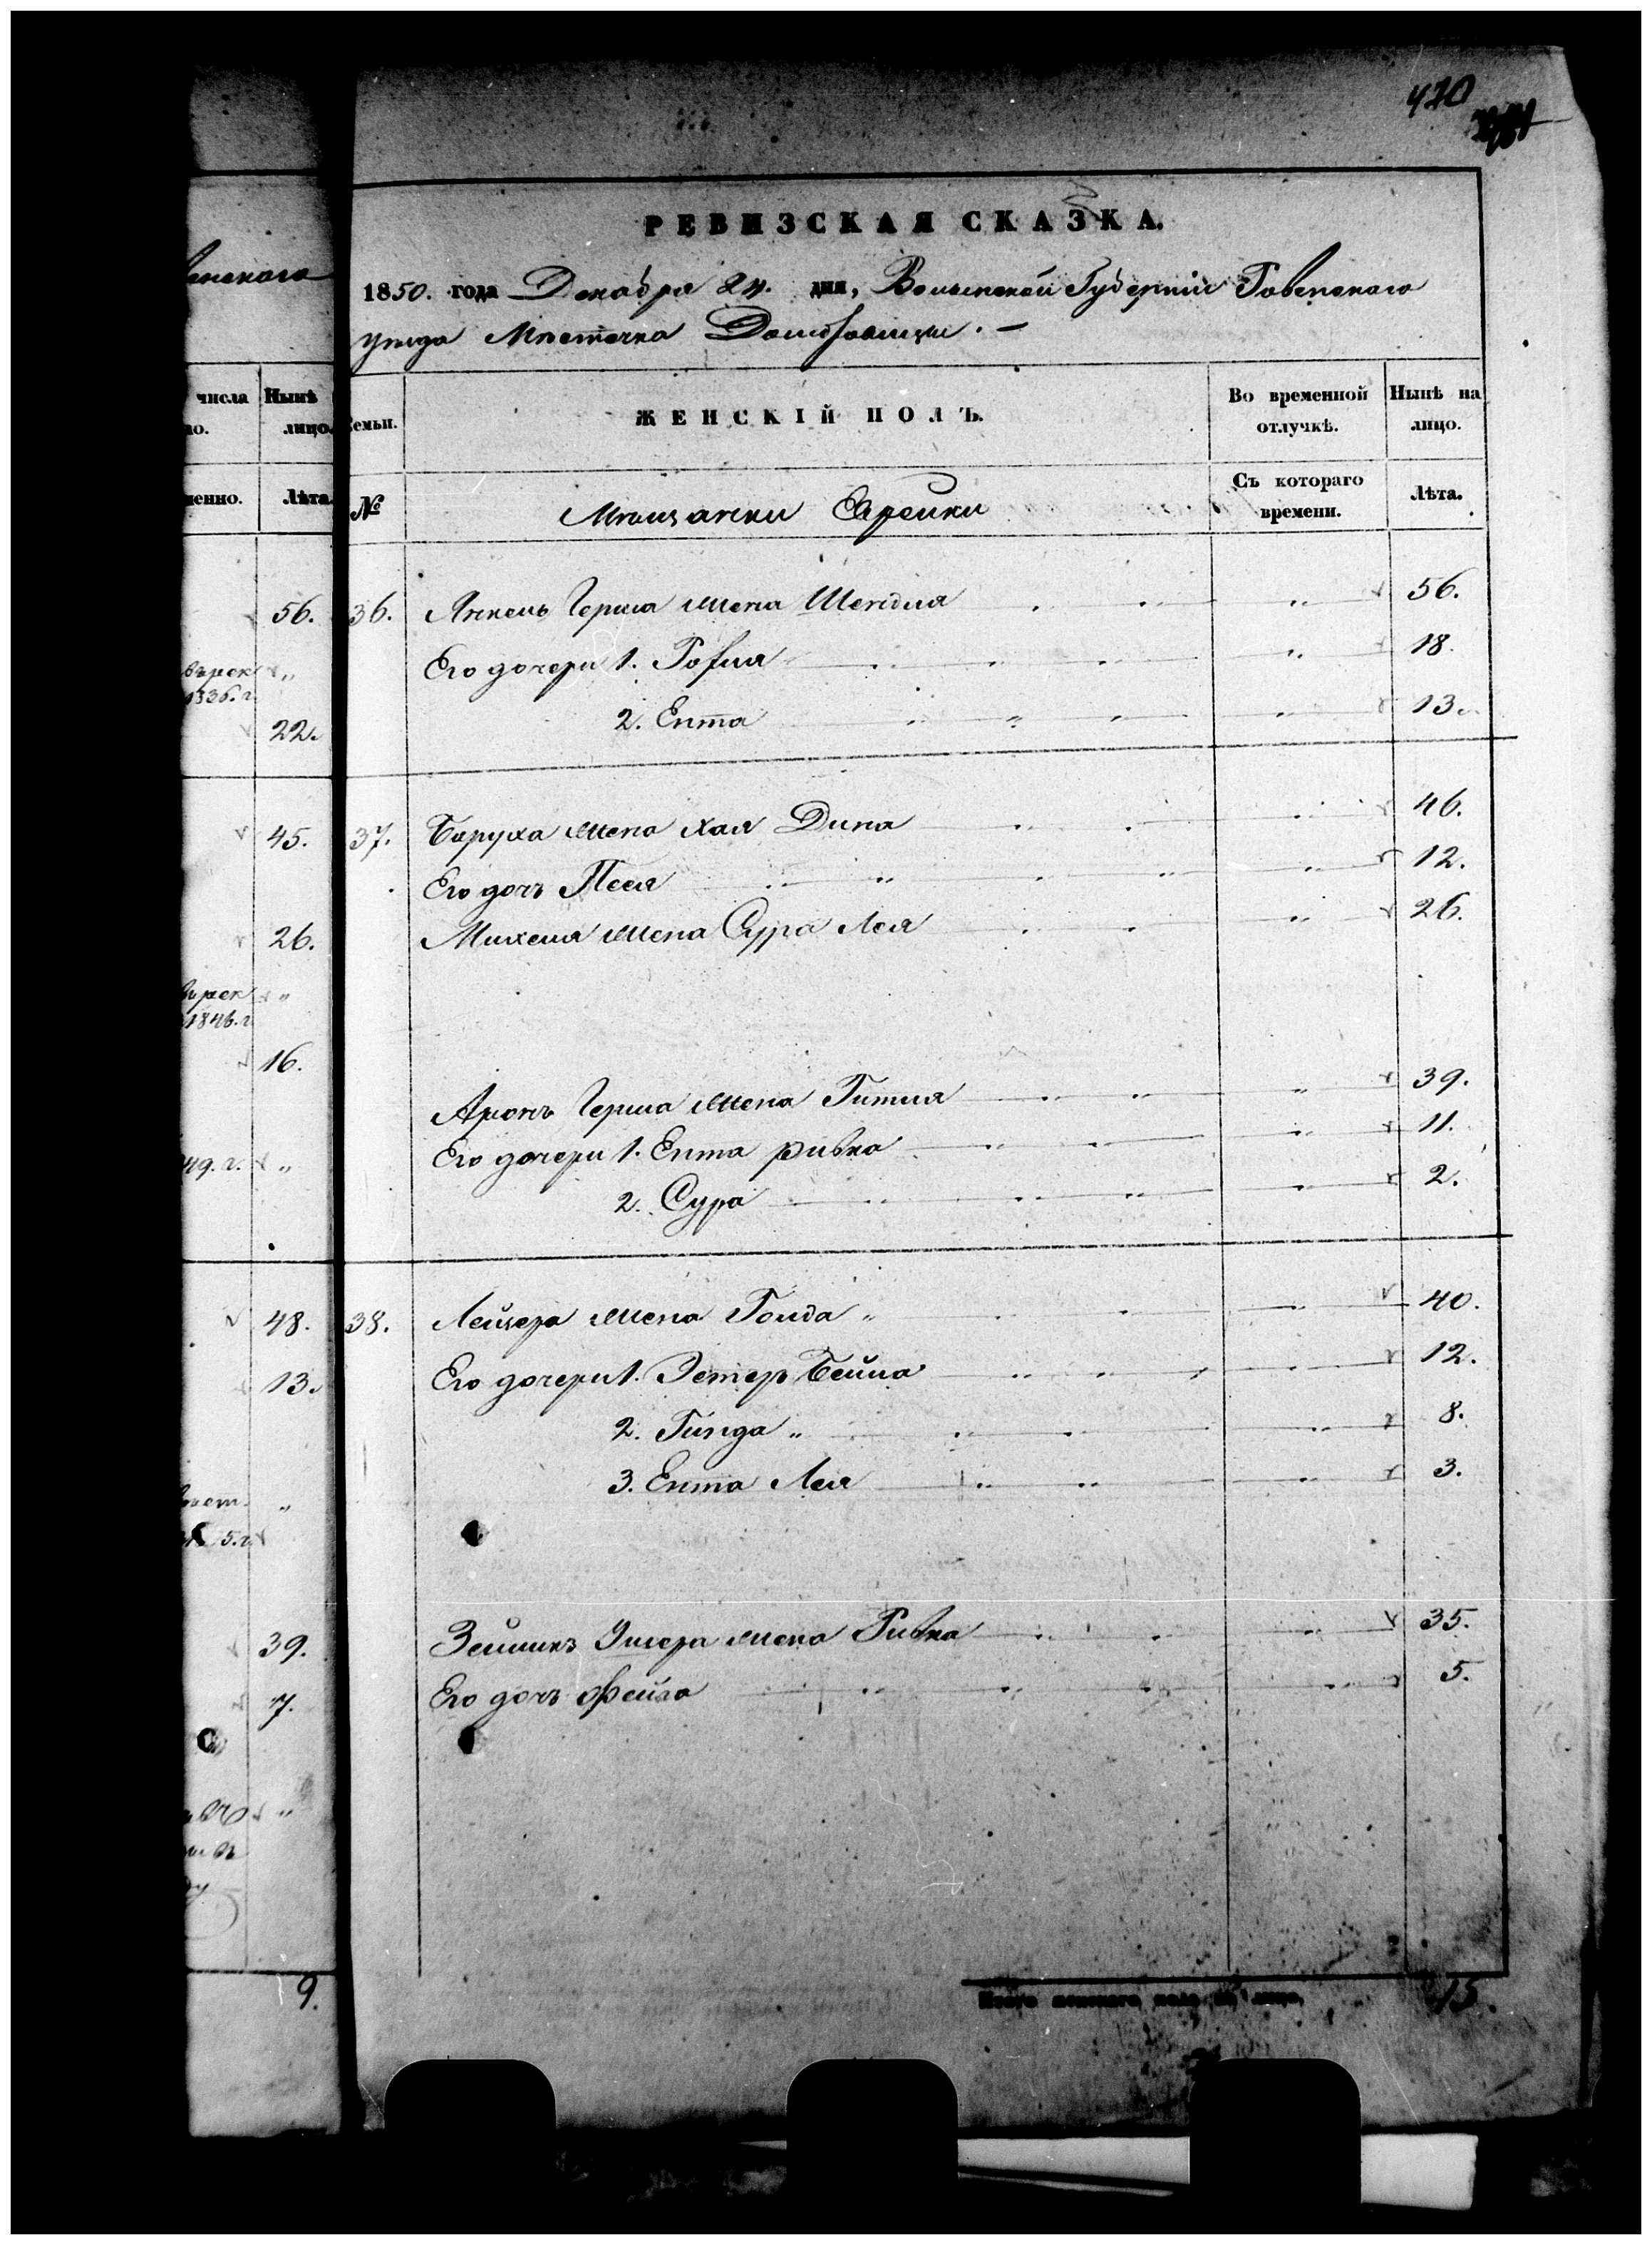 420
РЕВИЗСКАЯ СКАЗКА.
1850. года Декабря 24. дня, Волынской Губернiи Ровенскаго
уѣзда Мѣстечка Домбровицы. —
енскаго
числа
Нынѣ
лицо.
Лѣта.
Семьи.
ЖЕНСКIЙ ПОЛЪ.
Во временной
отлучкѣ.
Нынѣ на
лицо.
№
Мѣщанки Еврейки
Съ котораго
времени.
Лѣта.
56. 36. Янкель Герша жена Шендля " 56.
Его дочери 1. Рохля " 18.
2. Ента " 13.
22.
45. 37. Баруха жена Хая Дина " 46.
Его дочь Песя " 12.
26. Михеля жена Сура Лея " 26.
1846. г.
16.
Аронъ Герша жена Гитля " 39.
Его дочери 1. Ента Ривка " 11.
49. г. "
2. Сура " 2.
48. 38. Лейзера жена Голда " 40.
13. Его дочери 1. Эстеръ Бейла " 12.
2. Гинда " 8.
3. Ента Лея " 3.
5. г.
39. Зейликъ Ушера жена Ривка " 35.
7. Его дочь Фейга " 5.
9.
Итого женскаго пола на лицо. 15.